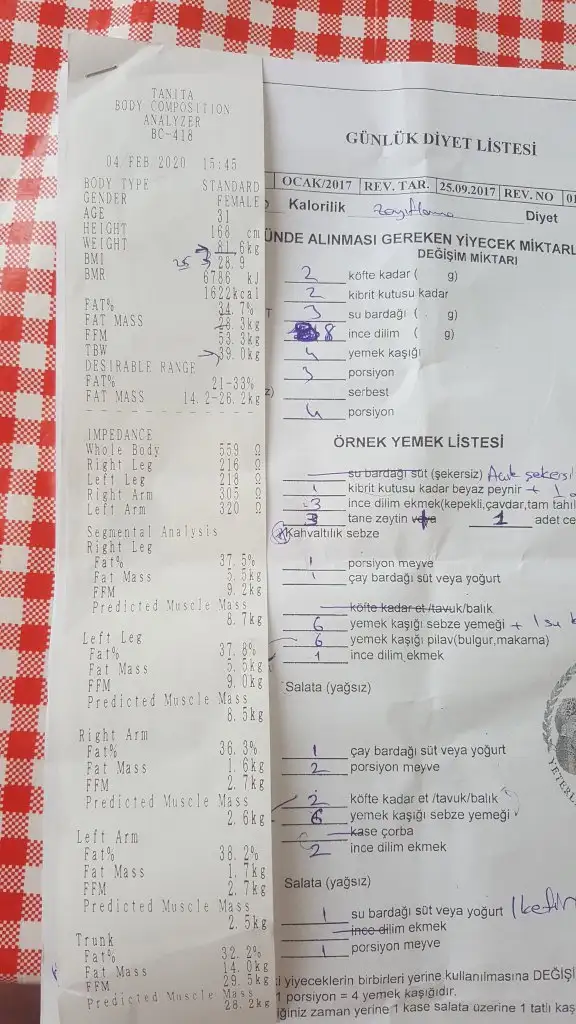 TANITA
BODY COMPOSITION
ANALYZER
BC-418
04 FEB 2020 15:45
BODY TYPE STANDARD
GENDER FEMALE
AGE 31
HEIGHT 168 cm
WEIGHT 81.6kg
BMI 28.9
BMR 6786 kJ
1622kcal
FAT% 34.7%
FAT MASS 28.3kg
FFM 53.3kg
TBW 39.0kg
DESIRABLE RANGE
FAT% 21-33%
FAT MASS 14.2-26.2kg
IMPEDANCE
Whole Body 559 Ω
Right Leg 216 Ω
Left Leg 218 Ω
Right Arm 305 Ω
Left Arm 320 Ω
Segmental Analysis
Right Leg
Fat% 37.5%
Fat Mass 5.5kg
FFM 9.2kg
Predicted Muscle Mass
8.7kg
Left Leg
Fat% 37.8%
Fat Mass 5.5kg
FFM 9.0kg
Predicted Muscle Mass
8.5kg
Right Arm
Fat% 36.3%
Fat Mass 1.6kg
FFM 2.7kg
Predicted Muscle Mass
2.6kg
Left Arm
Fat% 38.2%
Fat Mass 1.7kg
FFM 2.7kg
Predicted Muscle Mass
2.5kg
Trunk
Fat% 32.2%
Fat Mass 14.0kg
FFM 29.5kg
Predicted Muscle Mass
28.2kg
GÜNLÜK DİYET LİSTESİ
OCAK/2017 REV. TAR. 25.09.2017 REV. NO
Kalorilik zayıflama Diyet
ÜNDE ALINMASI GEREKEN YİYECEK MİKTARL
DEĞİŞİM MİKTARI
2 köfte kadar ( g)
2 kibrit kutusu kadar
3 su bardağı ( g)
8 ince dilim ( g)
4 yemek kaşığı
3 porsiyon
serbest
4 porsiyon
ÖRNEK YEMEK LİSTESİ
su bardağı süt (şekersiz) Açık şekersi
1 kibrit kutusu kadar beyaz peynir + 1
3 ince dilim ekmek(kepekli,çavdar,tam tahıl
3 tane zeytin veya 1 adet ce
Kahvaltılık sebze
1 porsiyon meyve
1 çay bardağı süt veya yoğurt
köfte kadar et /tavuk/balık
6 yemek kaşığı sebze yemeği + 1 su b
6 yemek kaşığı pilav(bulgur,makarna)
1 ince dilim ekmek
Salata (yağsız)
1 çay bardağı süt veya yoğurt
2 porsiyon meyve
2 köfte kadar et /tavuk/balık
6 yemek kaşığı sebze yemeği
kase çorba
2 ince dilim ekmek
Salata (yağsız)
1 su bardağı süt veya yoğurt 1 kefir
ince dilim ekmek
1 porsiyon meyve
i yiyeceklerin birbirleri yerine kullanılmasına DEĞİŞİ
1 porsiyon = 4 yemek kaşığıdır.
iğiniz zaman yerine 1 kase salata üzerine 1 tatlı kaş